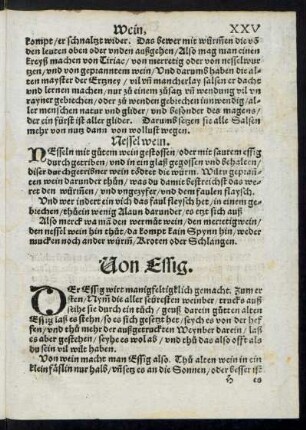 Wein. XXV
kompt/ er schnaltzt wider. Das Fewer mit würmẽ die vō
den leuten oben oder vnden außgehen/ Also mag man einen
kreyß machen von Tiriac/ von merrettig oder von nesselwur
tzen/ vnd von gepranntem wein/ Vnd darumb haben die al
ten mayster der Ertzney/ vil vñ mancherlay salsen er dacht
vnd lernen machen/ nur zu einem zusatz vñ wendung vil vn
rayner gebrechen/ oder zu wenden gebrechen inwendig/ al
ler menschen natur vnd glider/ vnd besonder des magens/
der ein fürst ist aller glider. Darumb setzen sie alle Salsen
mehr von nutz dann von wollust wegen.
Nessel wein.
NEsseln mit gůtem wein gestossen/ oder mit saurem essig
durch getriben/ vnd in ein glaß gegossen vnd behalten/
diser durch getribner wein tödtet die würm. Würz gepran
ten wein darunder thůn/ was du damit bestreichst das we
ret den würmen/ vnd vngezyfer/ vnd dem faulen flaysch.
Vnd wer indert ein vich das faul flaysch het/ in einem ge
biechen/ thů ein wenig Alaun darunder/ es etzt sich auß
Also merck wa man den wermůt wein/ den merrettig wein/
den nessel wein hin thůt/ da kompt kain Spynn hin/ weder
mucken noch ander würm/ Kroten oder Schlangen.
Von Essig.
DEr Essig wirt manigfeltigklich gemacht. Zum er
sten/ Nym̃ die aller zeitigsten weinber/ trucks auß
seihe sie durch ein tůch/ geuß darein gůtten alten
Essig laß es stehn/ so es sich gesetzt hat/ seych es von der hef
fen/ vnd thů mehr der außgetruckten Weynber darein/ laß
es aber gestehen/ seyhe es wol ab/ vnd thů das also offt als
du sein vil wilt haben.
Von wein macht man Essig also. Thů alten wein in ein
klein fäßlin nur halb/ vñ setz es an die Sonnen/ oder besser ist
es